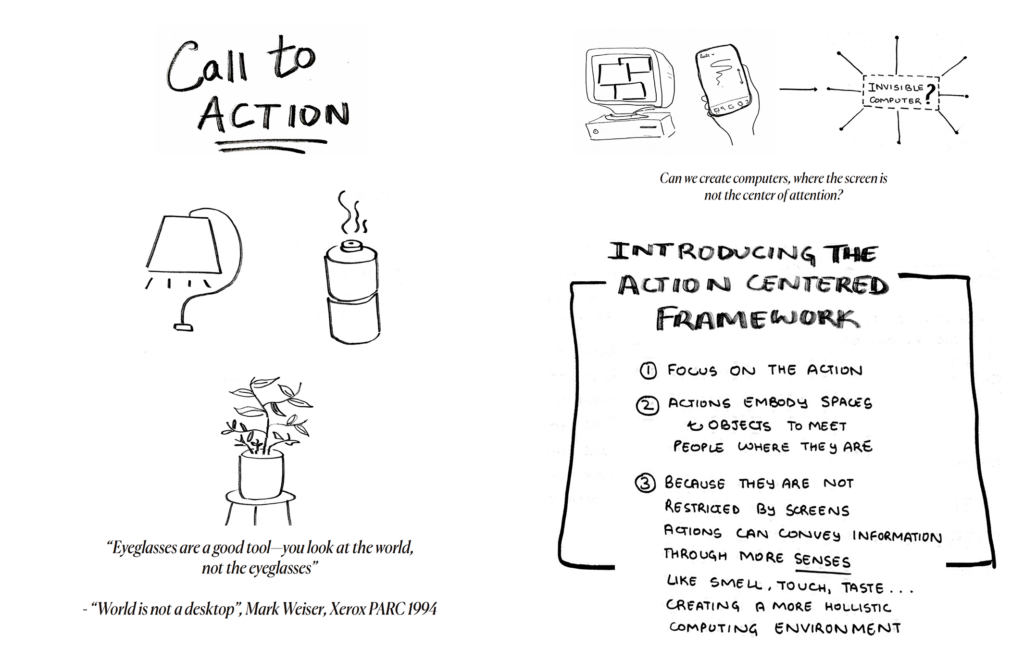 Call to
ACTION
"Eyeglasses are a good tool—you look at the world,
not the eyeglasses"
- "World is not a desktop", Mark Weiser, Xerox PARC 1994
INVISIBLE
COMPUTER ?
Can we create computers, where the screen is
not the center of attention?
INTRODUCING THE
ACTION CENTERED
FRAMEWORK
① FOCUS ON THE ACTION
② ACTIONS EMBODY SPACES
& OBJECTS TO MEET
PEOPLE WHERE THEY ARE
③ BECAUSE THEY ARE NOT
RESTRICTED BY SCREENS
ACTIONS CAN CONVEY INFORMATION
THROUGH MORE SENSES
LIKE SMELL, TOUCH, TASTE...
CREATING A MORE HOLLISTIC
COMPUTING ENVIRONMENT